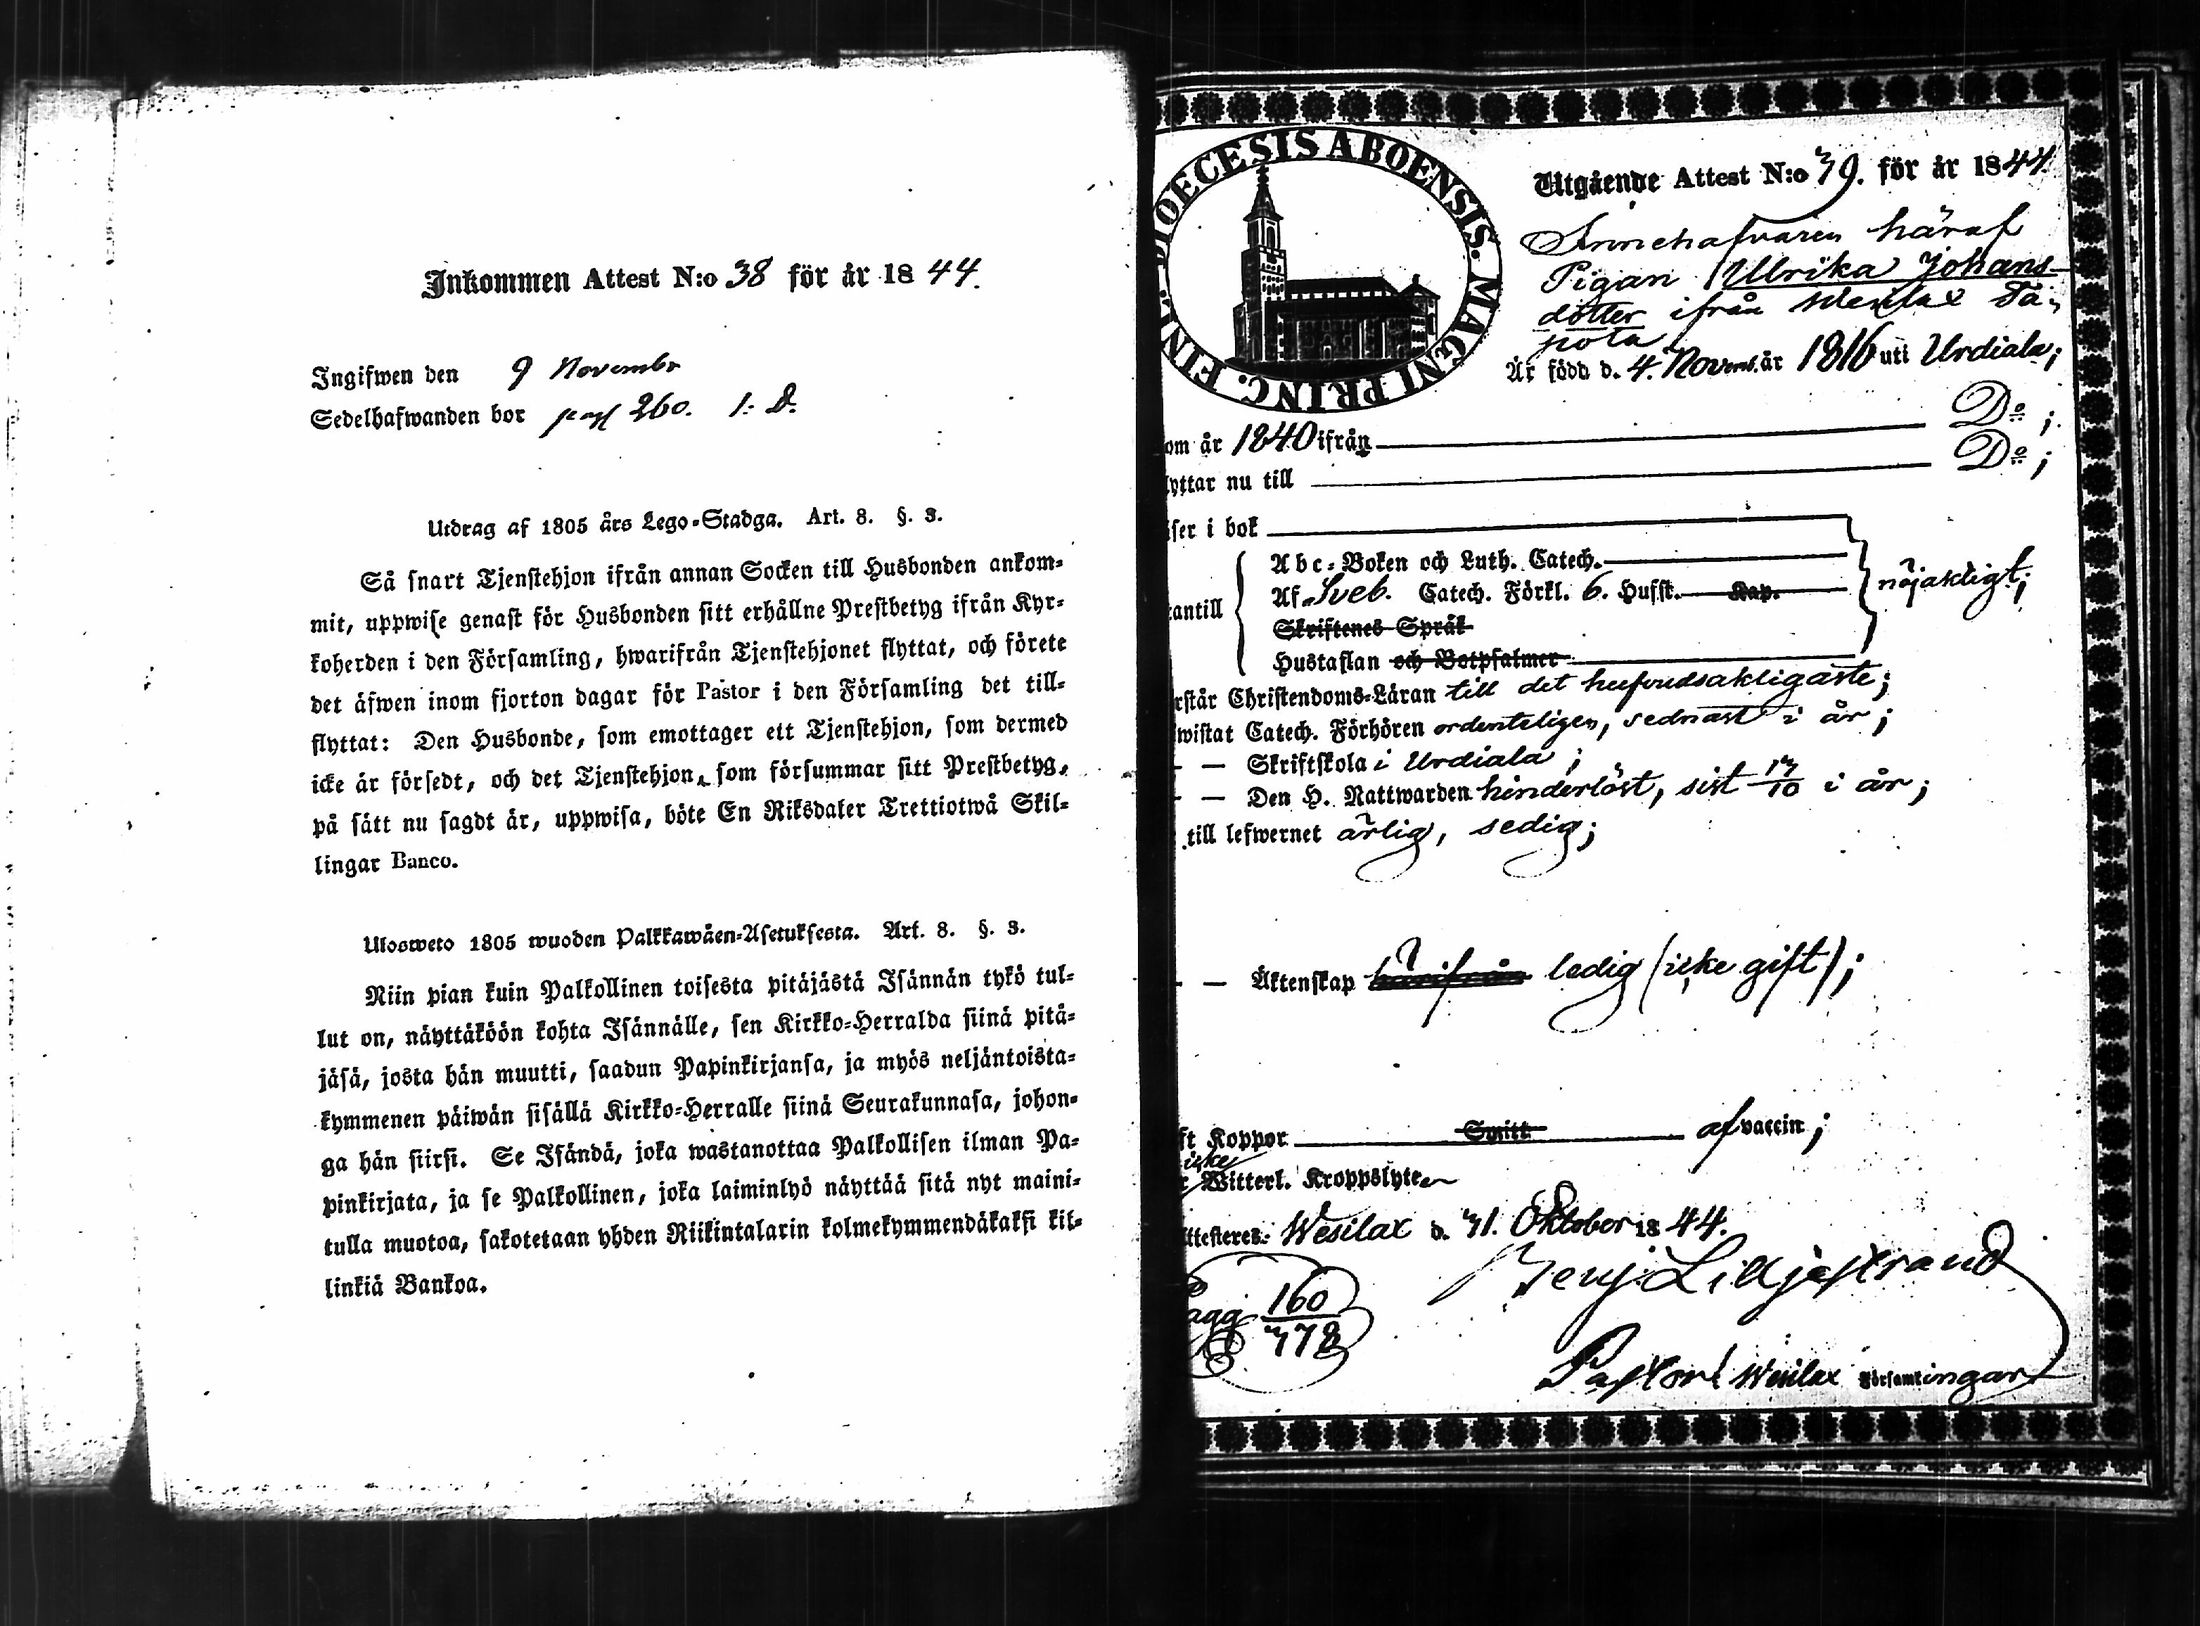 Inkommen Attest N:o 38 för år 1844.
Ingifwen den 9 Novembr
Sedelhafwanden bor pag 260. 1. D.
Utdrag af 1805 års Lego-Stadga. Art. 8. §. 3.
Så snart Tjenstehjon ifrån annan Socken till Husbonden ankom-
mit, uppwise genast för Husbonden sitt erhållne Prestbetyg ifrån Kyr-
koherden i den Församling, hwarifrån Tjenstehjonet flyttat, och förete
det äfwen inom fjorton dagar för Pastor i den Församling det till-
flyttat: Den Husbonde, som emottager ett Tjenstehjon, som dermed
icke är försedt, och det Tjenstehjon, som försummar sitt Prestbetyg,
på sätt nu sagdt är, uppwisa, böte En Riksdaler Trettiotwå Skil-
lingar Banco.
Ulosweto 1805 wuoden Palkkawäen-Asetuksesta. Art. 8. §. 3.
Niin pian kuin Palkollinen toisesta pitäjästä Isännän tykö tul-
lut on, näyttäköön kohta Isännälle, sen Kirkko-Herralda siinä pitä-
jäsä, josta hän muutti, saadun Papinkirjansa, ja myös neljäntoista-
kymmenen päiwän sisällä Kirkko-Herralle siinä Seurakunnasa, johon-
ga hän siirsi. Se Isändä, joka wastanottaa Palkollisen ilman Pa-
pinkirjata, ja se Palkollinen, joka laiminlyö näyttää sitä nyt maini-
tulla muotoa, sakotetaan yhden Riikintalarin kolmekymmendäkaksi kil-
linkiä Bankoa.
DIOECESIS ABOENSIS. MAGNI PRINC. FINL.
Utgående Attest N:o 39. för år 1844.
Innehafvaren häraf
Pigan Ulrika Johans-
dotter ifrån Wesilax Ta-
pola
Är född d. 4. Novemb. år 1816 uti Urdiala;
om år 1840 ifrån D:o;
lyttar nu till D:o;
äser i bok
Abc-Boken och Luth. Catech.
Af Sveb. Catech. Förkl. 6. Husst. Kap. nöjaktigt;
antill
Skriftenes Språk
Hustaflan och Botpsalmer
rstår Christendoms-Läran till det hufvudsakligaste;
wistat Catech. Förhören ordenteligen, sednast i år;
— — Skriftskola i Urdiala;
— — Den H. Nattwarden hinderlöst, sist 13/10 i år;
till lefwernet ärlig, sedig;
— — Äktenskap ledig (icke gift);
ft Koppor Smitt af vaccin;
icke
r Witterl. Kroppslyte
ttesteres: Wesilax d. 31. Oktober 1844.
Benj: Lilljestrand
Pagg 160/378
Pastor i Wesilax Församlingar